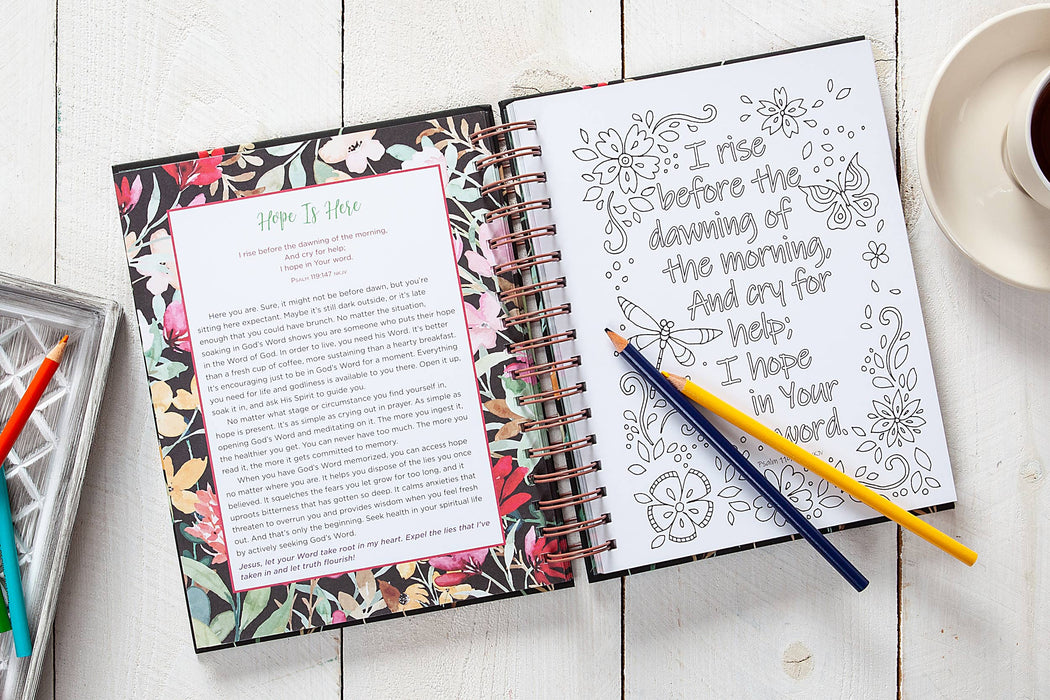 Hope Is Here
I rise before the dawning of the morning,
And cry for help;
I hope in Your word.
Psalm 119:147 NKJV
Here you are. Sure, it might not be before dawn, but you're
sitting here expectant. Maybe it's still dark outside, or it's late
enough that you could have brunch. No matter the situation,
soaking in God's Word shows you are someone who puts their hope
in the Word of God. In order to live, you need his Word. It's better
than a fresh cup of coffee, more sustaining than a hearty breakfast.
It's encouraging just to be in God's Word for a moment. Everything
you need for life and godliness is available to you there. Open it up,
soak it in, and ask His Spirit to guide you.
No matter what stage or circumstance you find yourself in,
hope is present. It's as simple as crying out in prayer. As simple as
opening God's Word and meditating on it. The more you ingest it,
the healthier you get. You can never have too much. The more you
read it, the more it gets committed to memory.
When you have God's Word memorized, you can access hope
no matter where you are. It helps you dispose of the lies you once
believed. It squelches the fears you let grow for too long, and it
uproots bitterness that has gotten so deep. It calms anxieties that
threaten to overrun you and provides wisdom when you feel fresh
out. And that's only the beginning. Seek health in your spiritual life
by actively seeking God's Word.
Jesus, let your Word take root in my heart. Expel the lies that I've
taken in and let truth flourish!
I rise
before the
dawning of
the morning,
And cry for
help;
I hope
in Your
word.
Psalm